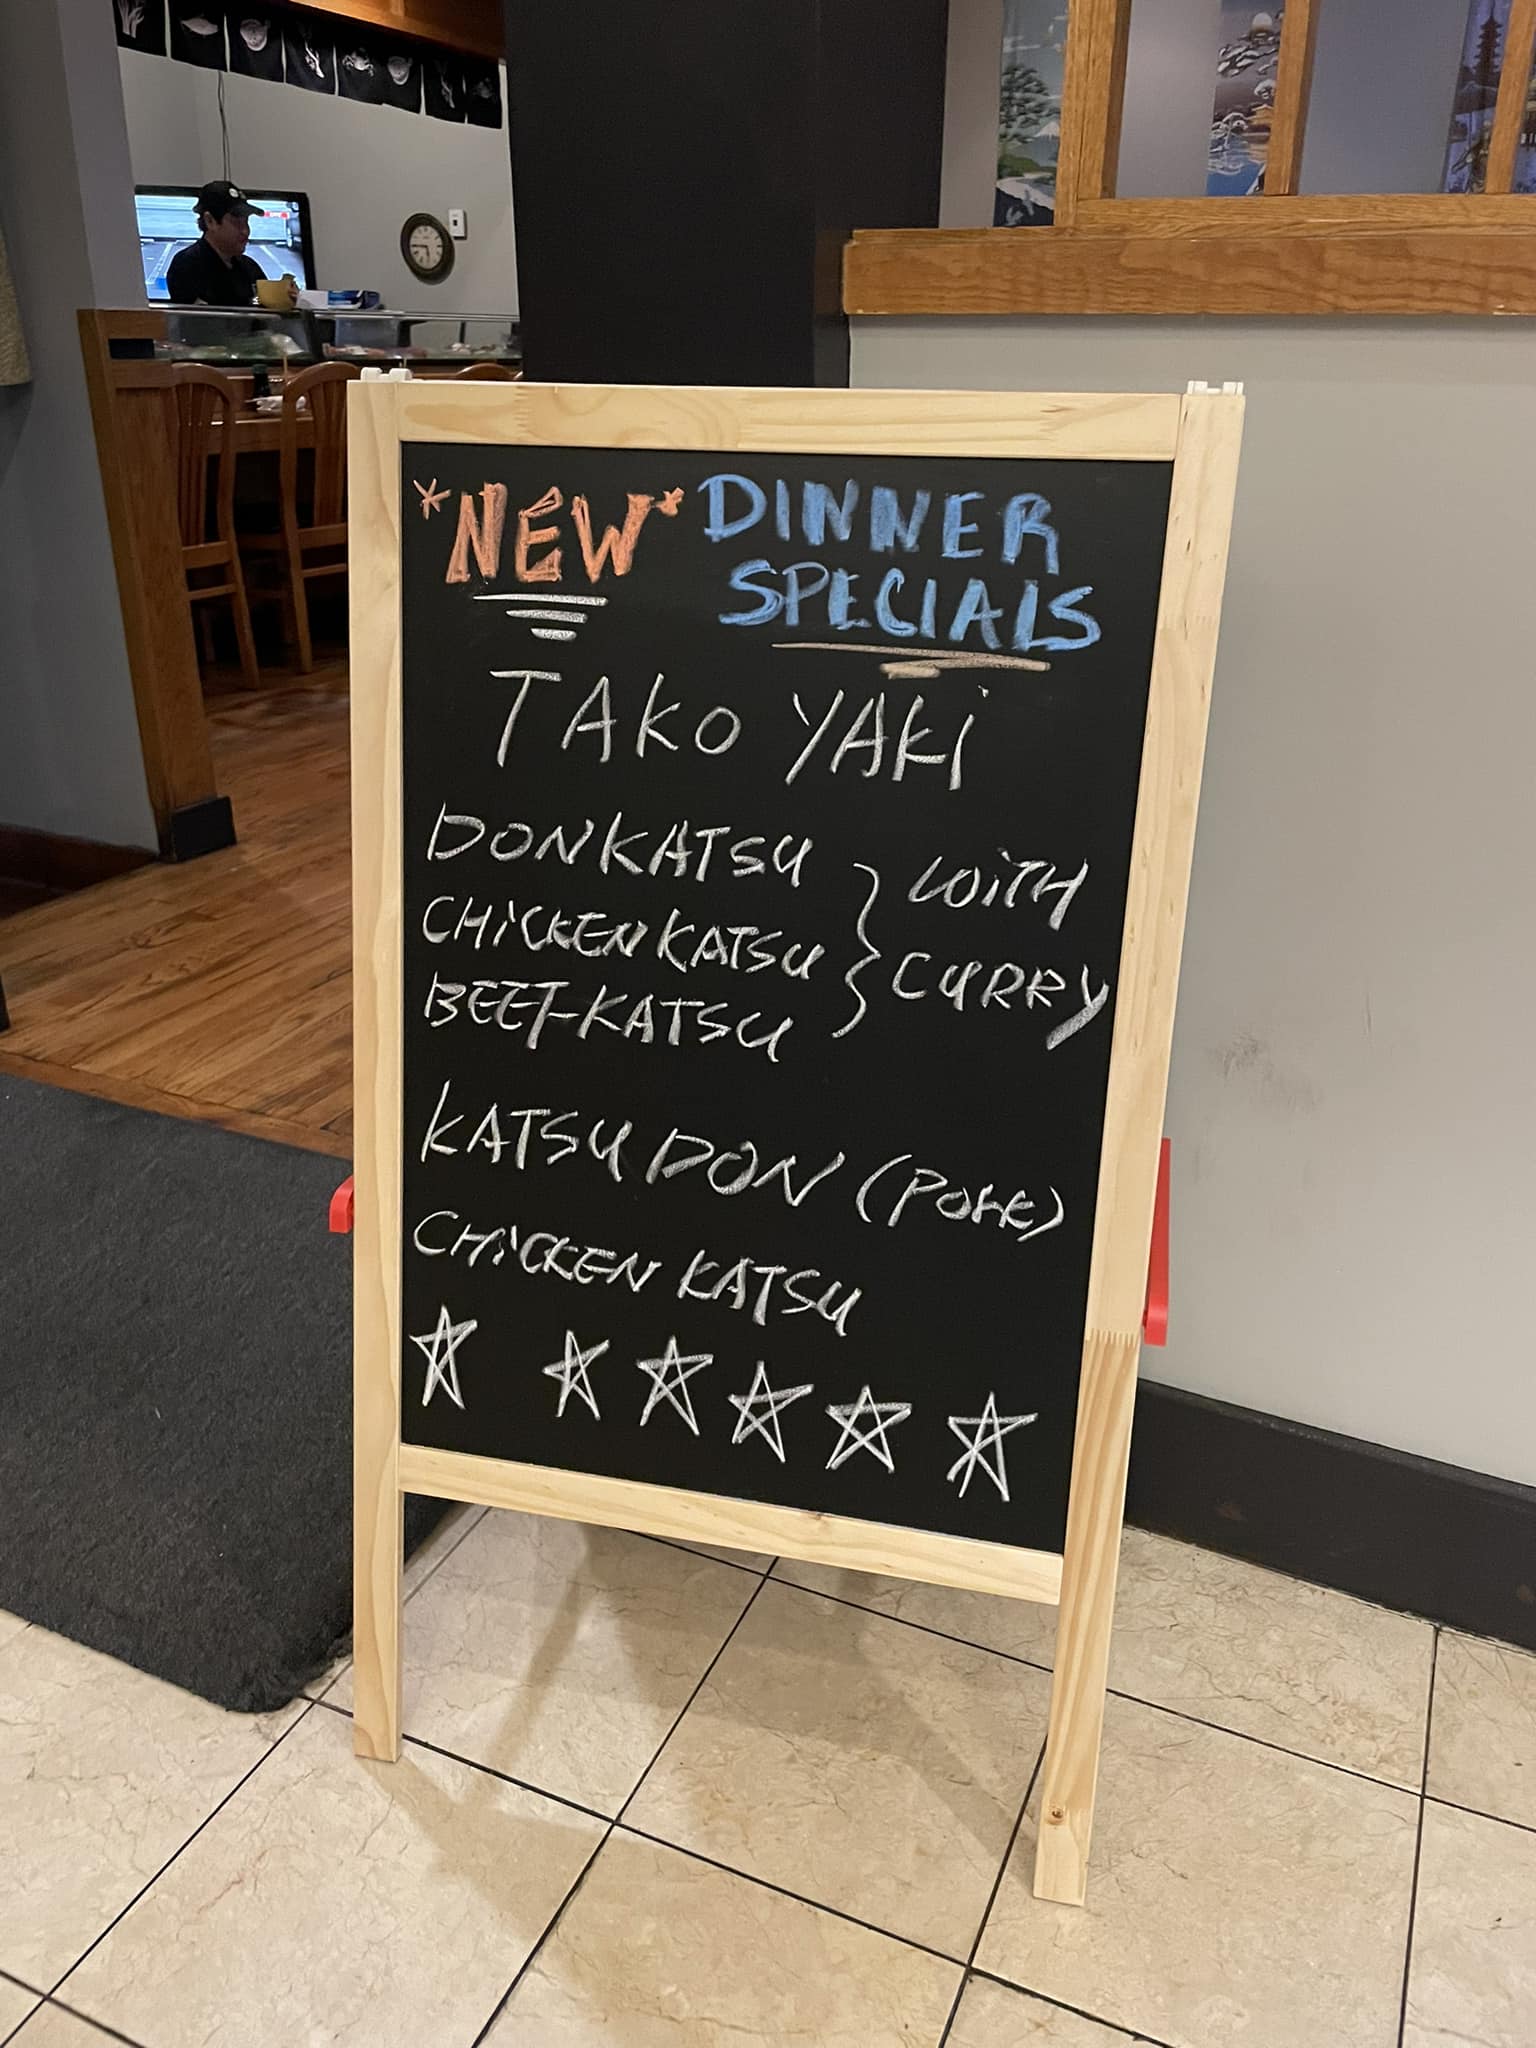 *NEW* DINNER
SPECIALS
TAKO YAKI
DONKATSU
CHiCKEN KATSU
BEEF-KATSU
WiTH
CURRY
KATSU DON (PORK)
CHiCKEN KATSU